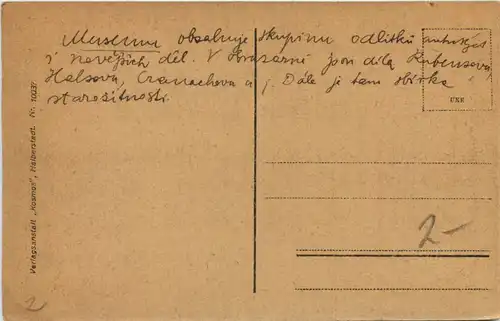 Museum obsahuje skupinu odlitků antických
i novějších děl. V obrazárně jsou díla Rubensova,
Halsova, Cranachova a j. Dále je tam sbírka
starožitností.
UXR
2-
2
Verlagsanstalt „Kosmos", Halberstadt. Nr. 10037